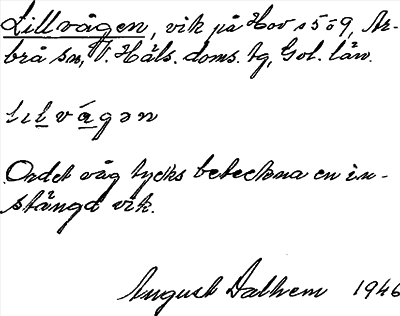 Lillvågen, vik på Hov s 5 ö 9, Ar-
brå sn, V. Häls. doms. tg, Gvl. län.
lılvágən
Ordet våg tycks beteckna en in-
stängd vik.
August Dalhem 1946